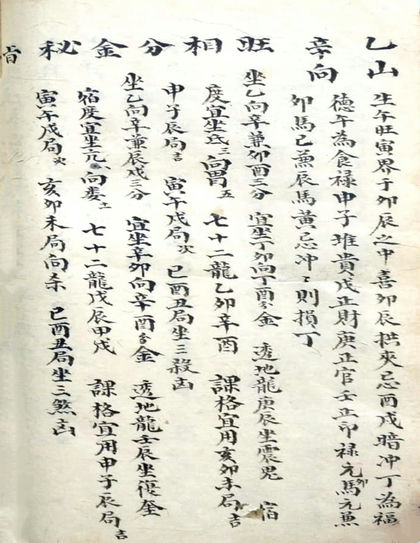 乙山
辛向
旺相分金秘旨
生午旺寅界于卯辰之中喜卯辰拱夾忌酉戌暗冲丁為福
德午為食祿申子堆貴戊正財庚正官壬正印祿元卯馬元兼
卯馬巳兼辰馬黄忌冲〻則損丁
坐乙向辛兼卯酉三分 宜坐丁卯向丁酉分金 透地龍庚辰坐震 宿
度宜坐氐三向胃五 七十二龍乙卯辛酉 課格宜用亥卯未局吉
申子辰局吉 寅午戌局次 巳酉丑局坐三殺凶
坐乙向辛兼辰戌三分 宜坐辛卯向辛酉分金 透地龍壬辰坐復奎
宿度宜坐亢向婁 七十二龍戊辰甲戌 課格宜用申子辰局吉
寅午戌局次 亥卯未局向杀 巳酉丑局坐三煞凶